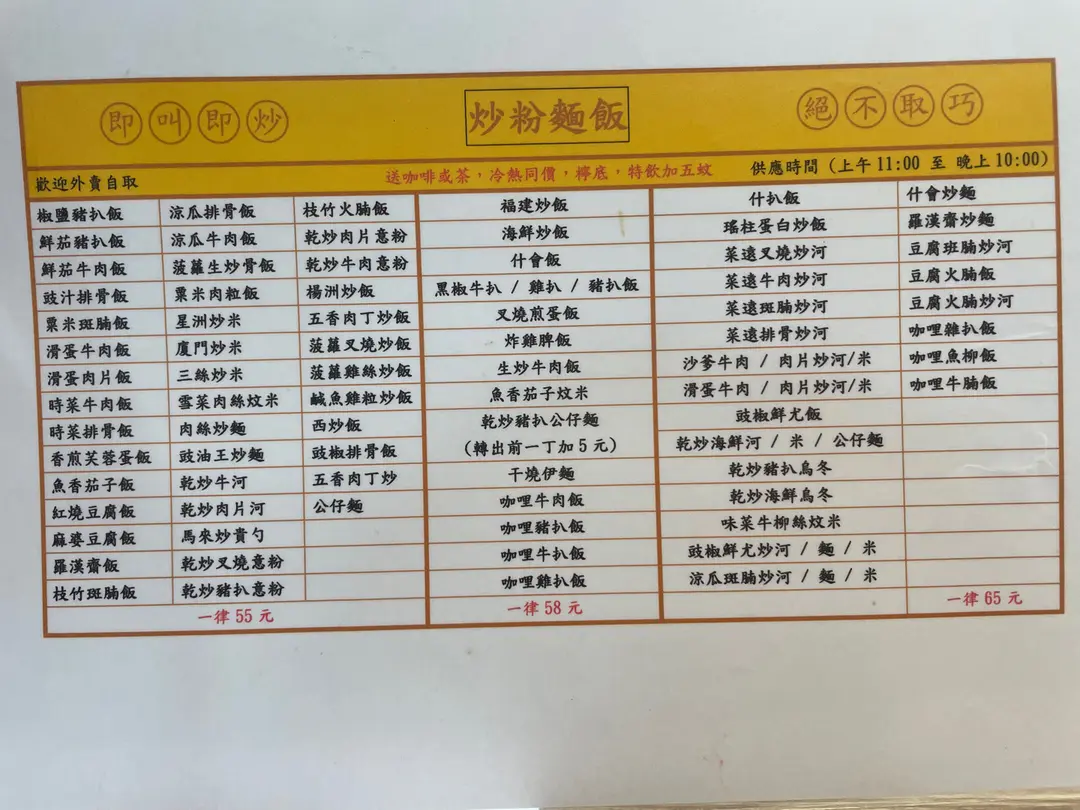 即叫即炒
炒粉麵飯
絕不取巧
歡迎外賣自取
送咖啡或茶，冷熱同價，檸底，特飲加五蚊
供應時間 (上午 11:00 至 晚上 10:00)
椒鹽豬扒飯
鮮茄豬扒飯
鮮茄牛肉飯
豉汁排骨飯
粟米斑腩飯
滑蛋牛肉飯
滑蛋肉片飯
時菜牛肉飯
時菜排骨飯
香煎芙蓉蛋飯
魚香茄子飯
紅燒豆腐飯
麻婆豆腐飯
羅漢齋飯
枝竹斑腩飯
涼瓜排骨飯
涼瓜牛肉飯
菠蘿生炒骨飯
粟米肉粒飯
星洲炒米
廈門炒米
三絲炒米
雪菜肉絲炆米
肉絲炒麵
豉油王炒麵
乾炒牛河
乾炒肉片河
馬來炒貴刁
乾炒叉燒意粉
乾炒豬扒意粉
枝竹火腩飯
乾炒肉片意粉
乾炒牛肉意粉
楊洲炒飯
五香肉丁炒飯
菠蘿叉燒炒飯
菠蘿雞絲炒飯
鹹魚雞粒炒飯
西炒飯
豉椒排骨飯
五香肉丁炒
公仔麵
一律 55 元
福建炒飯
海鮮炒飯
什會飯
黑椒牛扒 / 雞扒 / 豬扒飯
叉燒煎蛋飯
炸雞脾飯
生炒牛肉飯
魚香茄子炆米
乾炒豬扒公仔麵
(轉出前一丁加 5 元)
干燒伊麵
咖哩牛肉飯
咖哩豬扒飯
咖哩牛扒飯
咖哩雞扒飯
一律 58 元
什扒飯
瑤柱蛋白炒飯
菜遠叉燒炒河
菜遠牛肉炒河
菜遠斑腩炒河
菜遠排骨炒河
沙爹牛肉 / 肉片炒河/米
滑蛋牛肉 / 肉片炒河/米
豉椒鮮尤飯
乾炒海鮮河 / 米 / 公仔麵
乾炒豬扒烏冬
乾炒海鮮烏冬
味菜牛柳絲炆米
豉椒鮮尤炒河 / 麵 / 米
涼瓜斑腩炒河 / 麵 / 米
什會炒麵
羅漢齋炒麵
豆腐班腩炒河
豆腐火腩飯
豆腐火腩炒河
咖哩雜扒飯
咖哩魚柳飯
咖哩牛腩飯
一律 65 元